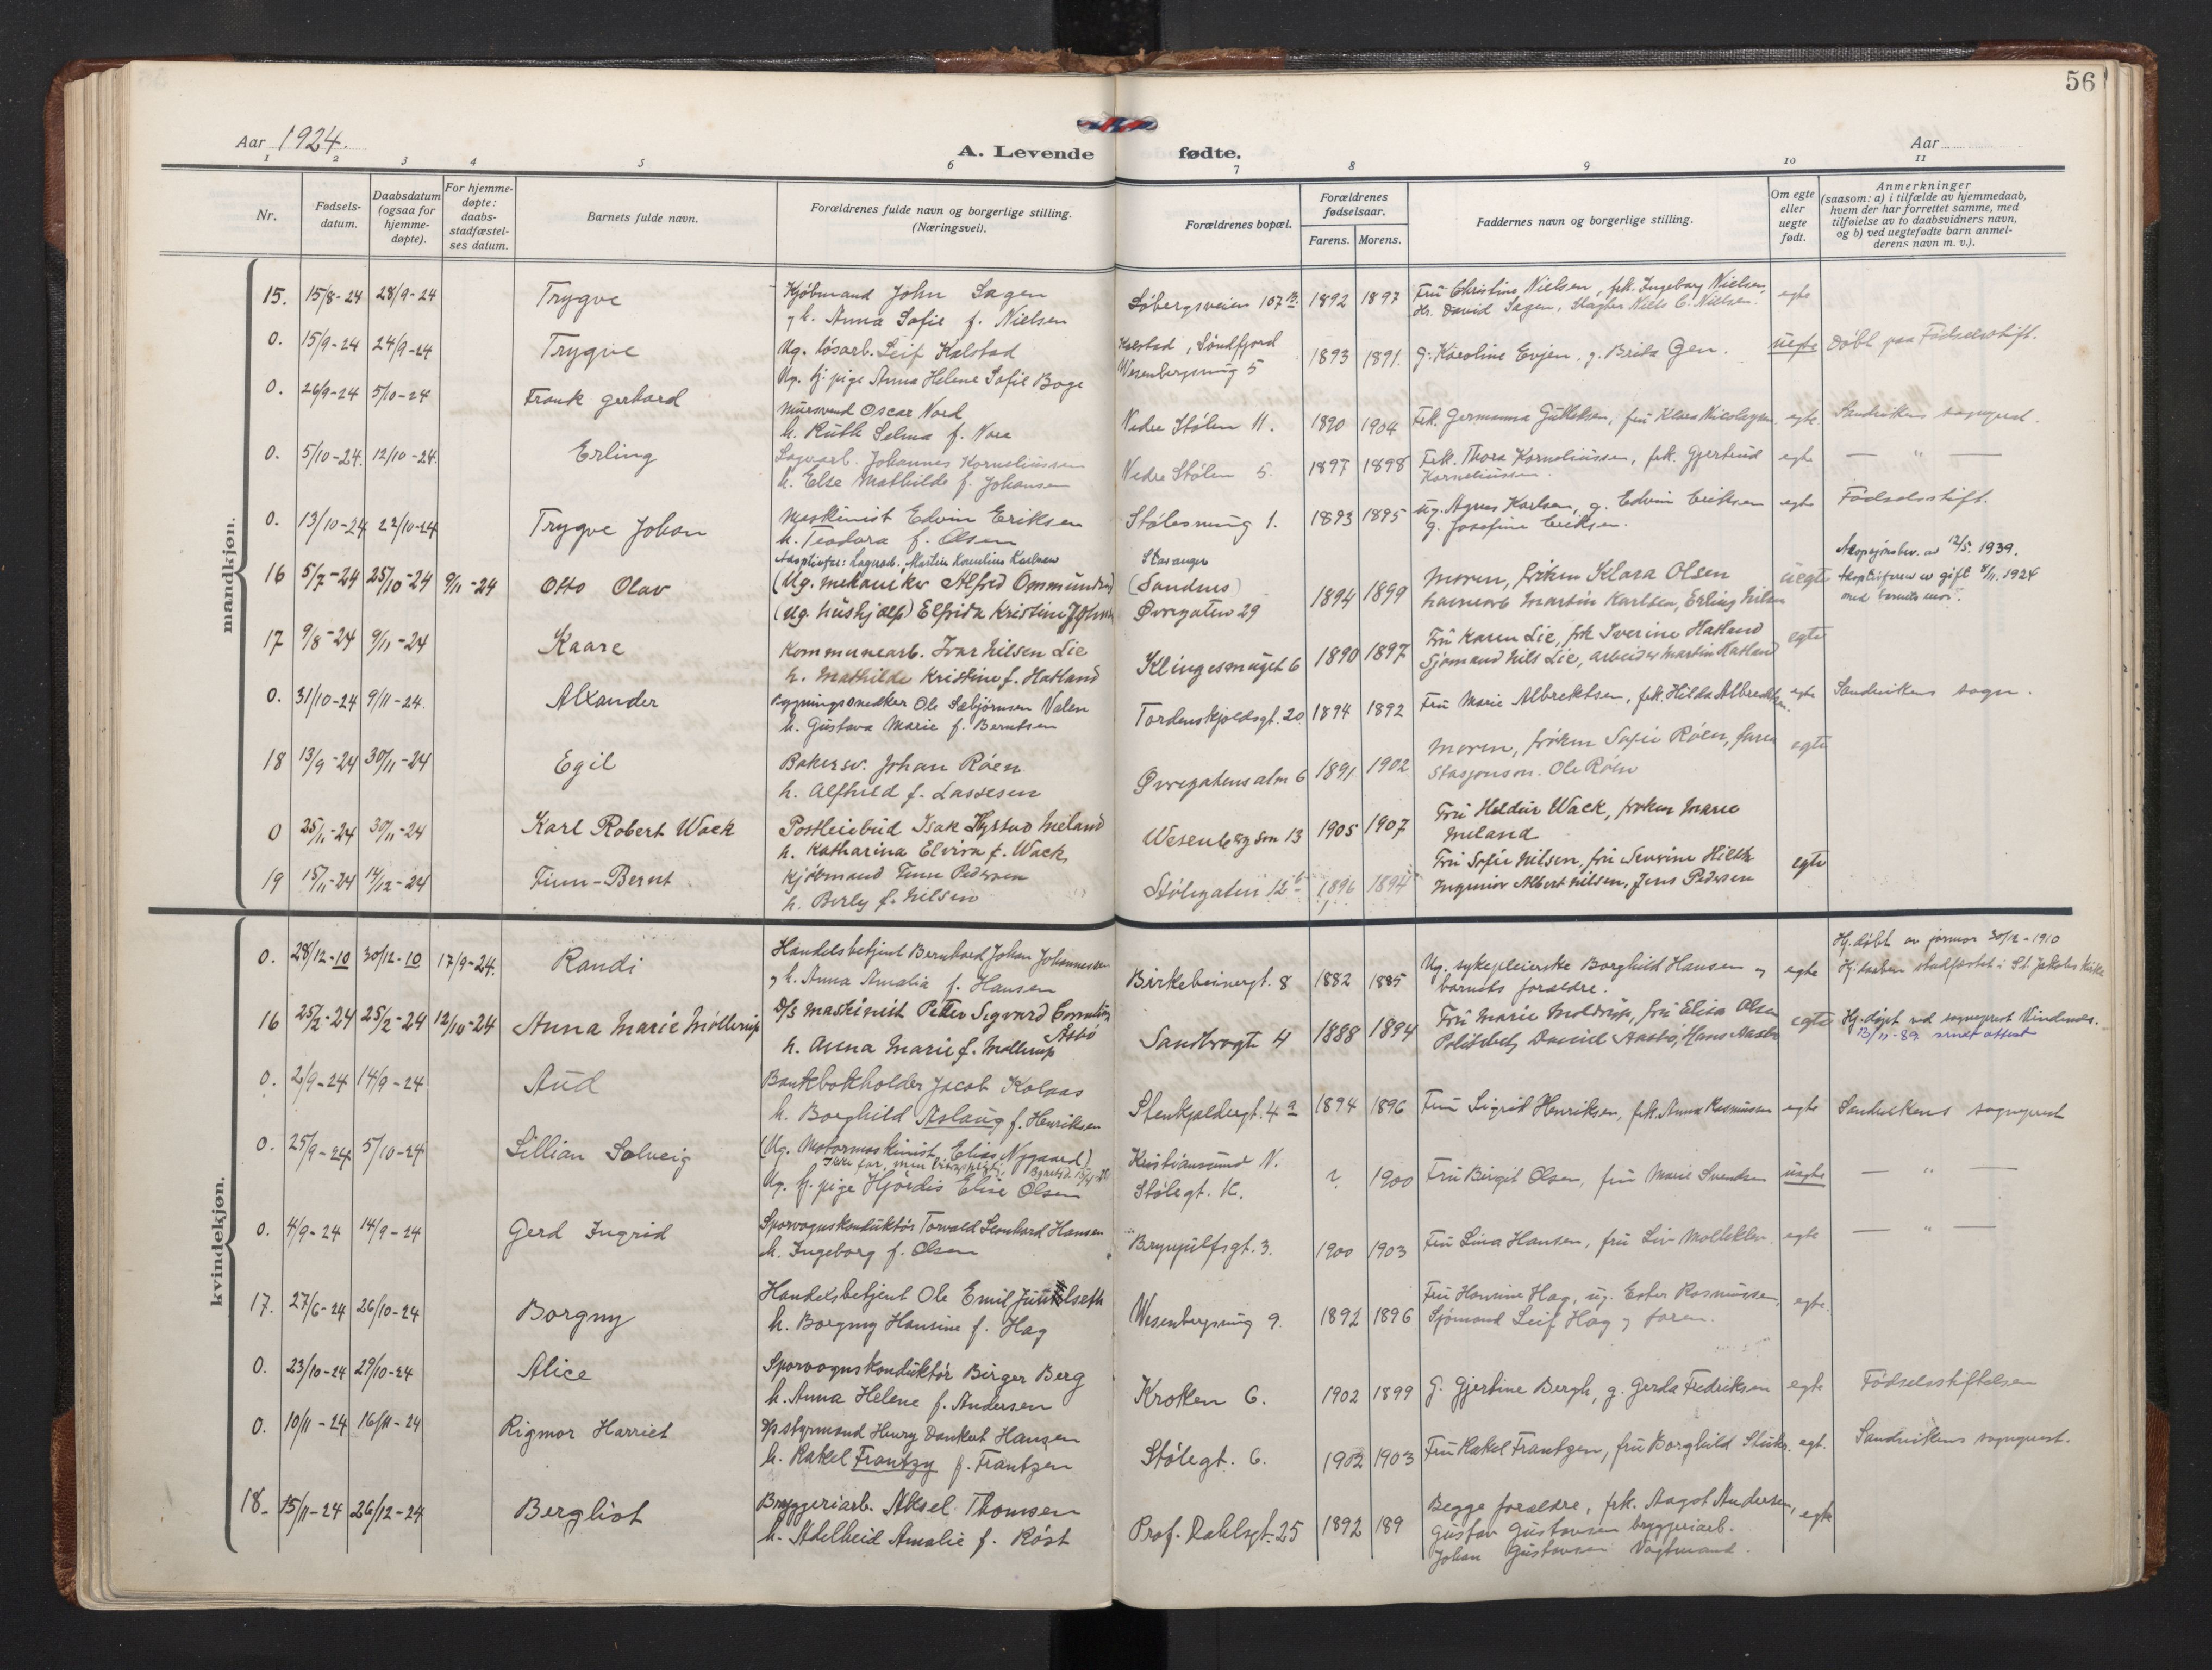 56
Aar 1924.
A. Levende fødte.
Aar
1 2 3 4 5 6 7 8 9 10 11
Nr.
Fødselsdatum.
Daabsdatum (ogsaa for hjemmedøpte).
For hjemmedøpte: daabsstadfæstelses datum.
Barnets fulde navn.
Forældrenes fulde navn og borgerlige stilling. (Næringsvei).
Forældrenes bopæl.
Forældrenes fødselsaar.
Farens. Morens.
Faddernes navn og borgerlige stilling.
Om egte eller uegte født.
Anmerkninger (saasom: a) i tilfælde av hjemmedaab, hvem der har forrettet samme, med tilføielse av to daabsvidners navn, og b) ved uegtefødte barn anmelderens navn m. v.).
mandkjøn.
15. 15/8-24 28/9-24 Trygve Kjøbmand John Sagen Søbergsveien 107 1892 1897 Fru Christine Nielsen, frk. Ingeborg Nielsen, egte
h. Anna Sofie f. Nielsen Hr. David Sagen, Niels C. Nielsen.
0. 15/9-24 24/9-24 Trygve Ug. løsarb. Leif Kalstad Kalstad, Søndfjord 1893 1891. g. Karoline Evjen, g. Brita Gen. uegte Døbt paa Fødselsstift.
Ug. tj. pige Anna Helene Sofie Boge Wesenbergsmug 5
0. 26/9-24 5/10-24 Frank Gerhard Mursvend Oscar Nord Nedre Stølen 11. 1890 1904 Frk. Germanna Gullaksen, fru Klara Nicolaysen. egte. Sandvikens sogneprest.
h. Ruth Selma f. Nore
0. 5/10-24. 12/10-24. Erling Johannes Korneliussen Nedre Stølen 5. 1897 1898 Frk. Thora Korneliussen, frk. Gjertrud egte — " —
h. Else Mathilde f. Johansen Korneliussen.
0. 13/10-24 22/10-24 Trygve Johan Maskinist Edvin Eriksen Stølesmug 1. 1893 1895 Ug. Agnes Karlsen, g. Edvin Eriksen egte Fødselsstift.
h. Teodora f. Olsen g. Josefine Eriksen.
Adoptivfar: Lagerarb. Martin Kornelius Karlsen Stavanger Adopsjonsbev. av 12/5. 1939.
16 5/7-24 25/10-24 9/11-24 Otto Olav (Ug. mekaniker Alfred Ommundsen) (Sandnes) 1894 1899 Moren, frøken Klara Olsen uegte Adoptivfaren er gift 8/11. 1924
(Ug. hushjælp) Elfrida Kristine Øvregaten 29 Martin Karlsen, Erling Nilsen med barnets mor.
17 9/8-24 9/11-24 Kaare Kommunearb. Ivar Nilsen Lie Klingesmuget 6 1890 1897 Fru Karen Lie, frk Iverine Hatland egte
h. Mathilde Kristine f. Hatland Sjømand Nils Lie, arbeider Martin Hatland
0. 31/10-24 9/11-24. Alxander Bygningssnedker Ole Sæbjørnsen Valen Tordenskjoldsgt. 20. 1894 1892 Fru Marie Albrektsen, frk. Hilda Albrektsen. egte Sandvikens sogn.
h. Gustava Marie f. Berntsen
18 13/9-24 30/11-24 Egil Bakersv. Johan Røen Øvregatens alm 6 1891 1902 Moren, frøken Sofie Røen, faren egte
h. Alfhild f. Lassesen Stasjonsm. Ole Røen
0 25/11-24 30/11-24 Karl Robert Wack Postleiebud Isak Hystad Meland Wesenbergsm 13 1905 1907 Fru Haldur Wack, frøken Marie
h. Katharina Elvira f. Wack Meland
19 15/11-24 14/12-24 Finn-Bernt Kjøbmand Finn Pedersen Stølegaten 12 b 1896 1894 Fru Sofie Nilsen, fru Severine egte
h. Berly f. Nilsen Ingeniør Albert Nilsen, Jens Pedersen
kvindekjøn.
0. 28/12-10 30/12-10 17/9-24. Randi Handelsbetjent Bernhard Johan Johannessen Birkebeinergt. 8 1882 1885 Ug. sykepleierske Borghild Hansen og egte Hj. døbt av jormor 30/12-1910
h. Anna Amalia f. Hansen barnets forældre. Hj. daaben stadfæstet i St. Jakobs kirke
16 25/2-24 25/2-24 12/10-24 Anna Marie Møllerup D/S Maskinist Petter Sigvard Cornelius Aasbø Sandbrogt 4 1888 1894 Fru Marie Moldrup, fru Elisa Olsen egte Hj. døpt ved sogneprest Vindenes.
h. Anna Marie f. Møllerup Daniel Aasbø, Hans Aasbø 13/11-89 sendt attest
0. 2/9-24 14/9-24 Aud Bankbokholder Jacob Kolaas Stenkjeldergt. 4a 1894 1896 Fru Sigrid Henriksen, frk. Anna Rasmussen egte Sandvikens sogneprest
h. Borghild Aslaug f. Henriksen
0. 25/9-24 5/10-24 Lillian Solveig (Ug. Motormaskinist Elias Nygaard) Kristiansund N. ? 1900 Fru Birgit Olsen, fru Marie Svendsen uegte — " —
Ikke far, men bidragspligtig.
Ug. tj. pige Hjørdis Elise Olsen Stølegt. 1c.
0. 4/9-24 14/9-24 Gerd Ingrid Sporvognskonduktør Torvald Leonhard Hansen Brynjulfsgt. 3. 1900 1903 Fru Lina Hansen, fru Liv Molteklev. egte — " —
h. Ingeborg f. Olsen
17. 27/6-24 26/10-24 Borgny Handelsbetjent Ole Emil Wesenbergsmug 9. 1892 1896 Fru Hansine Hag, ug. Ester Rasmussen, egte.
h. Borgny Hansine f. Hag Sjømand Leif Hag og faren.
0. 23/10-24 29/10-24 Alice Sporvognskonduktør Birger Berg Kroken 6. 1902 1899 G. Gjertine Bergh, g. Gerda Fredriksen egte Fødselsstiftelsen
h. Anna Helene f. Andersen
0. 10/11-24 16/11-24 Rigmor Harriet styrmand Henry Dankert Hansen Stølegt. 6. 1902 1903 Fru Rakel Frantzen, fru Borghild egt. Sandvikens sogneprest.
h. Rakel Frantzy f. Frantzen
18- 15/11-24 26/12-24 Bergliot Bryggeriarb. Aksel Thomsen Prof. Dahlsgt. 25 1892 189 Begge forældre, frk. Aagot Andersen, egte
h. Adelheid Amalie f. Røst Gustav Gustavsen bryggeriarb.
Johan Gustavsen Vagtmand.